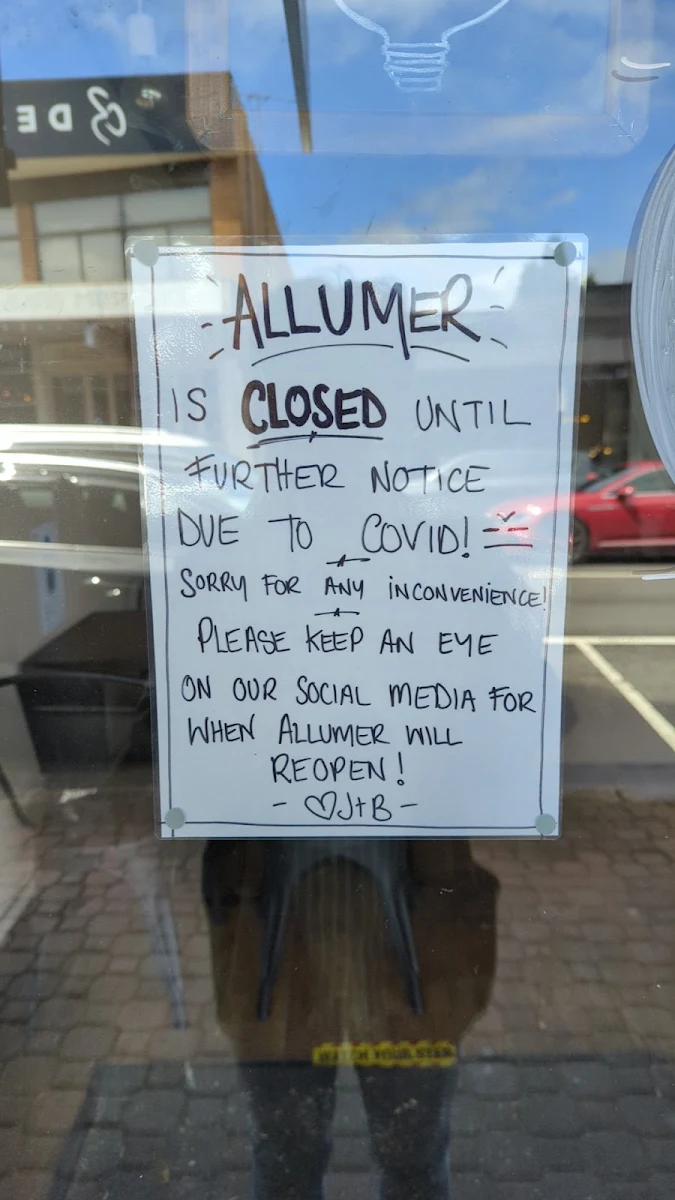 DE
ALLUMER
IS CLOSED UNTIL
FURTHER NOTICE
DUE TO COVID!
SORRY FOR ANY INCONVENIENCE!
PLEASE KEEP AN EYE
ON OUR SOCIAL MEDIA FOR
WHEN ALLUMER WILL
REOPEN!
- ♡J+B -
WATCH YOUR STEP